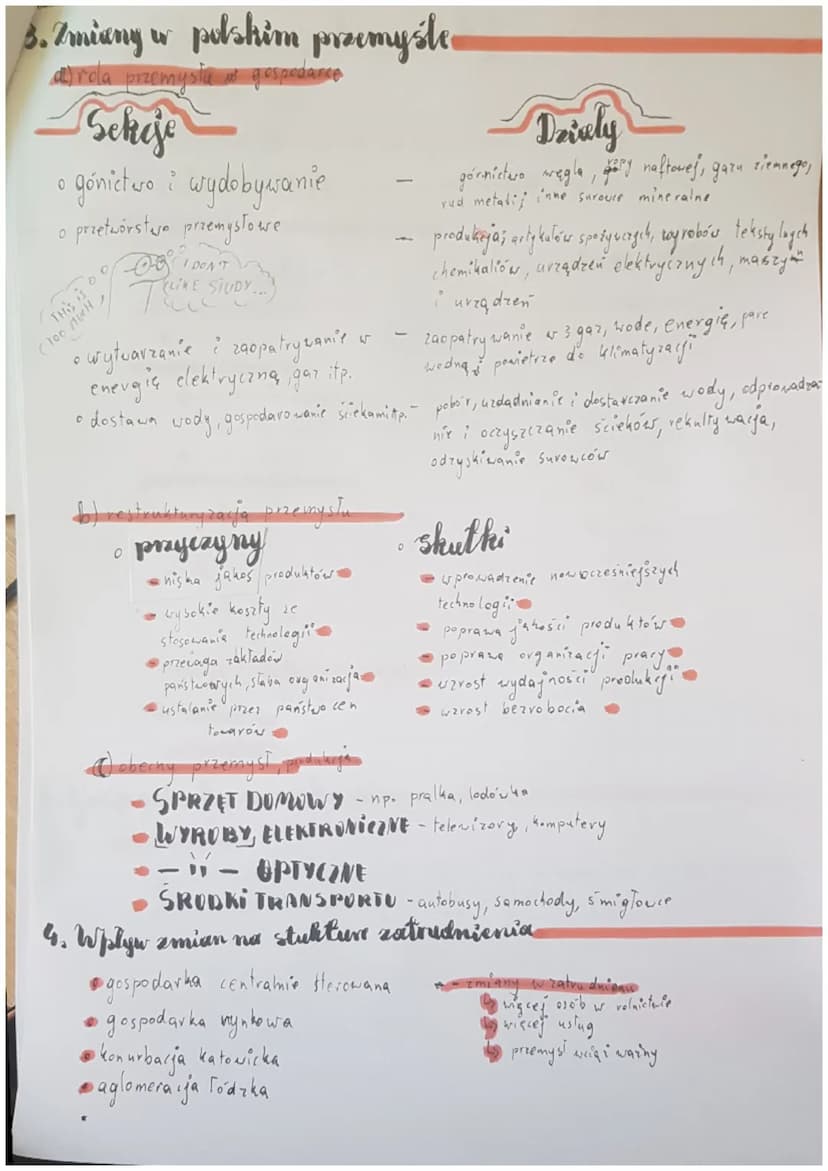 3. Zmiany w polskim przemyśle
a) rola przemysłu w gospodarce
Sekcje
Działy
o górnictwo i wydobywanie
— górnictwo węgla, ropy naftowej, gazu ziemnego,
rud metali i inne surowce mineralne
o przetwórstwo przemysłowe
— produkcja; artykułów spożywczych, wyrobów tekstylnych
chemikaliów, urządzeń elektrycznych, maszyn
i urządzeń
THIS IS TOO MUCH,
I DON'T
LIKE STUDY...
o wytwarzanie i zaopatrywanie w
energię elektryczną, gaz itp.
— zaopatrywanie w gaz, wodę, energię, parę
wodną i powietrze do klimatyzacji
o dostawa wody, gospodarowanie ściekami itp.
— pobór, uzdadnianie i dostarczanie wody, odprowadza
nie i oczyszczanie ścieków, rekultywacja,
odzyskiwanie surowców
b) restrukturyzacja przemysłu
o przyczyny
- niska jakość produktów
- wysokie koszty ze
stosowania technologii
- przewaga zakładów
państwowych, słaba organizacja
- ustalanie przez państwo cen
towarów
o skutki
- wprowadzenie nowocześniejszych
technologii
- poprawa jakości produktów
- poprawa organizacji pracy
- wzrost wydajności produkcji
- wzrost bezrobocia
c) obecny przemysł, produkcja
- SPRZĘT DOMOWY - np. pralka, lodówka
- WYROBY ELEKTRONICZNE - telewizory, komputery
- — ıı — OPTYCZNE
- ŚRODKI TRANSPORTU - autobusy, samochody, śmigłowce
4. Wpływ zmian na stukture zatrudnienia
• gospodarka centralnie sterowana
• gospodarka rynkowa
• konurbacja katowicka
• aglomeracja łódzka
- zmiany w zatrudnieniu
↳ więcej osób w rolnictwie
↳ więcej usług
↳ przemysł wciąż ważny